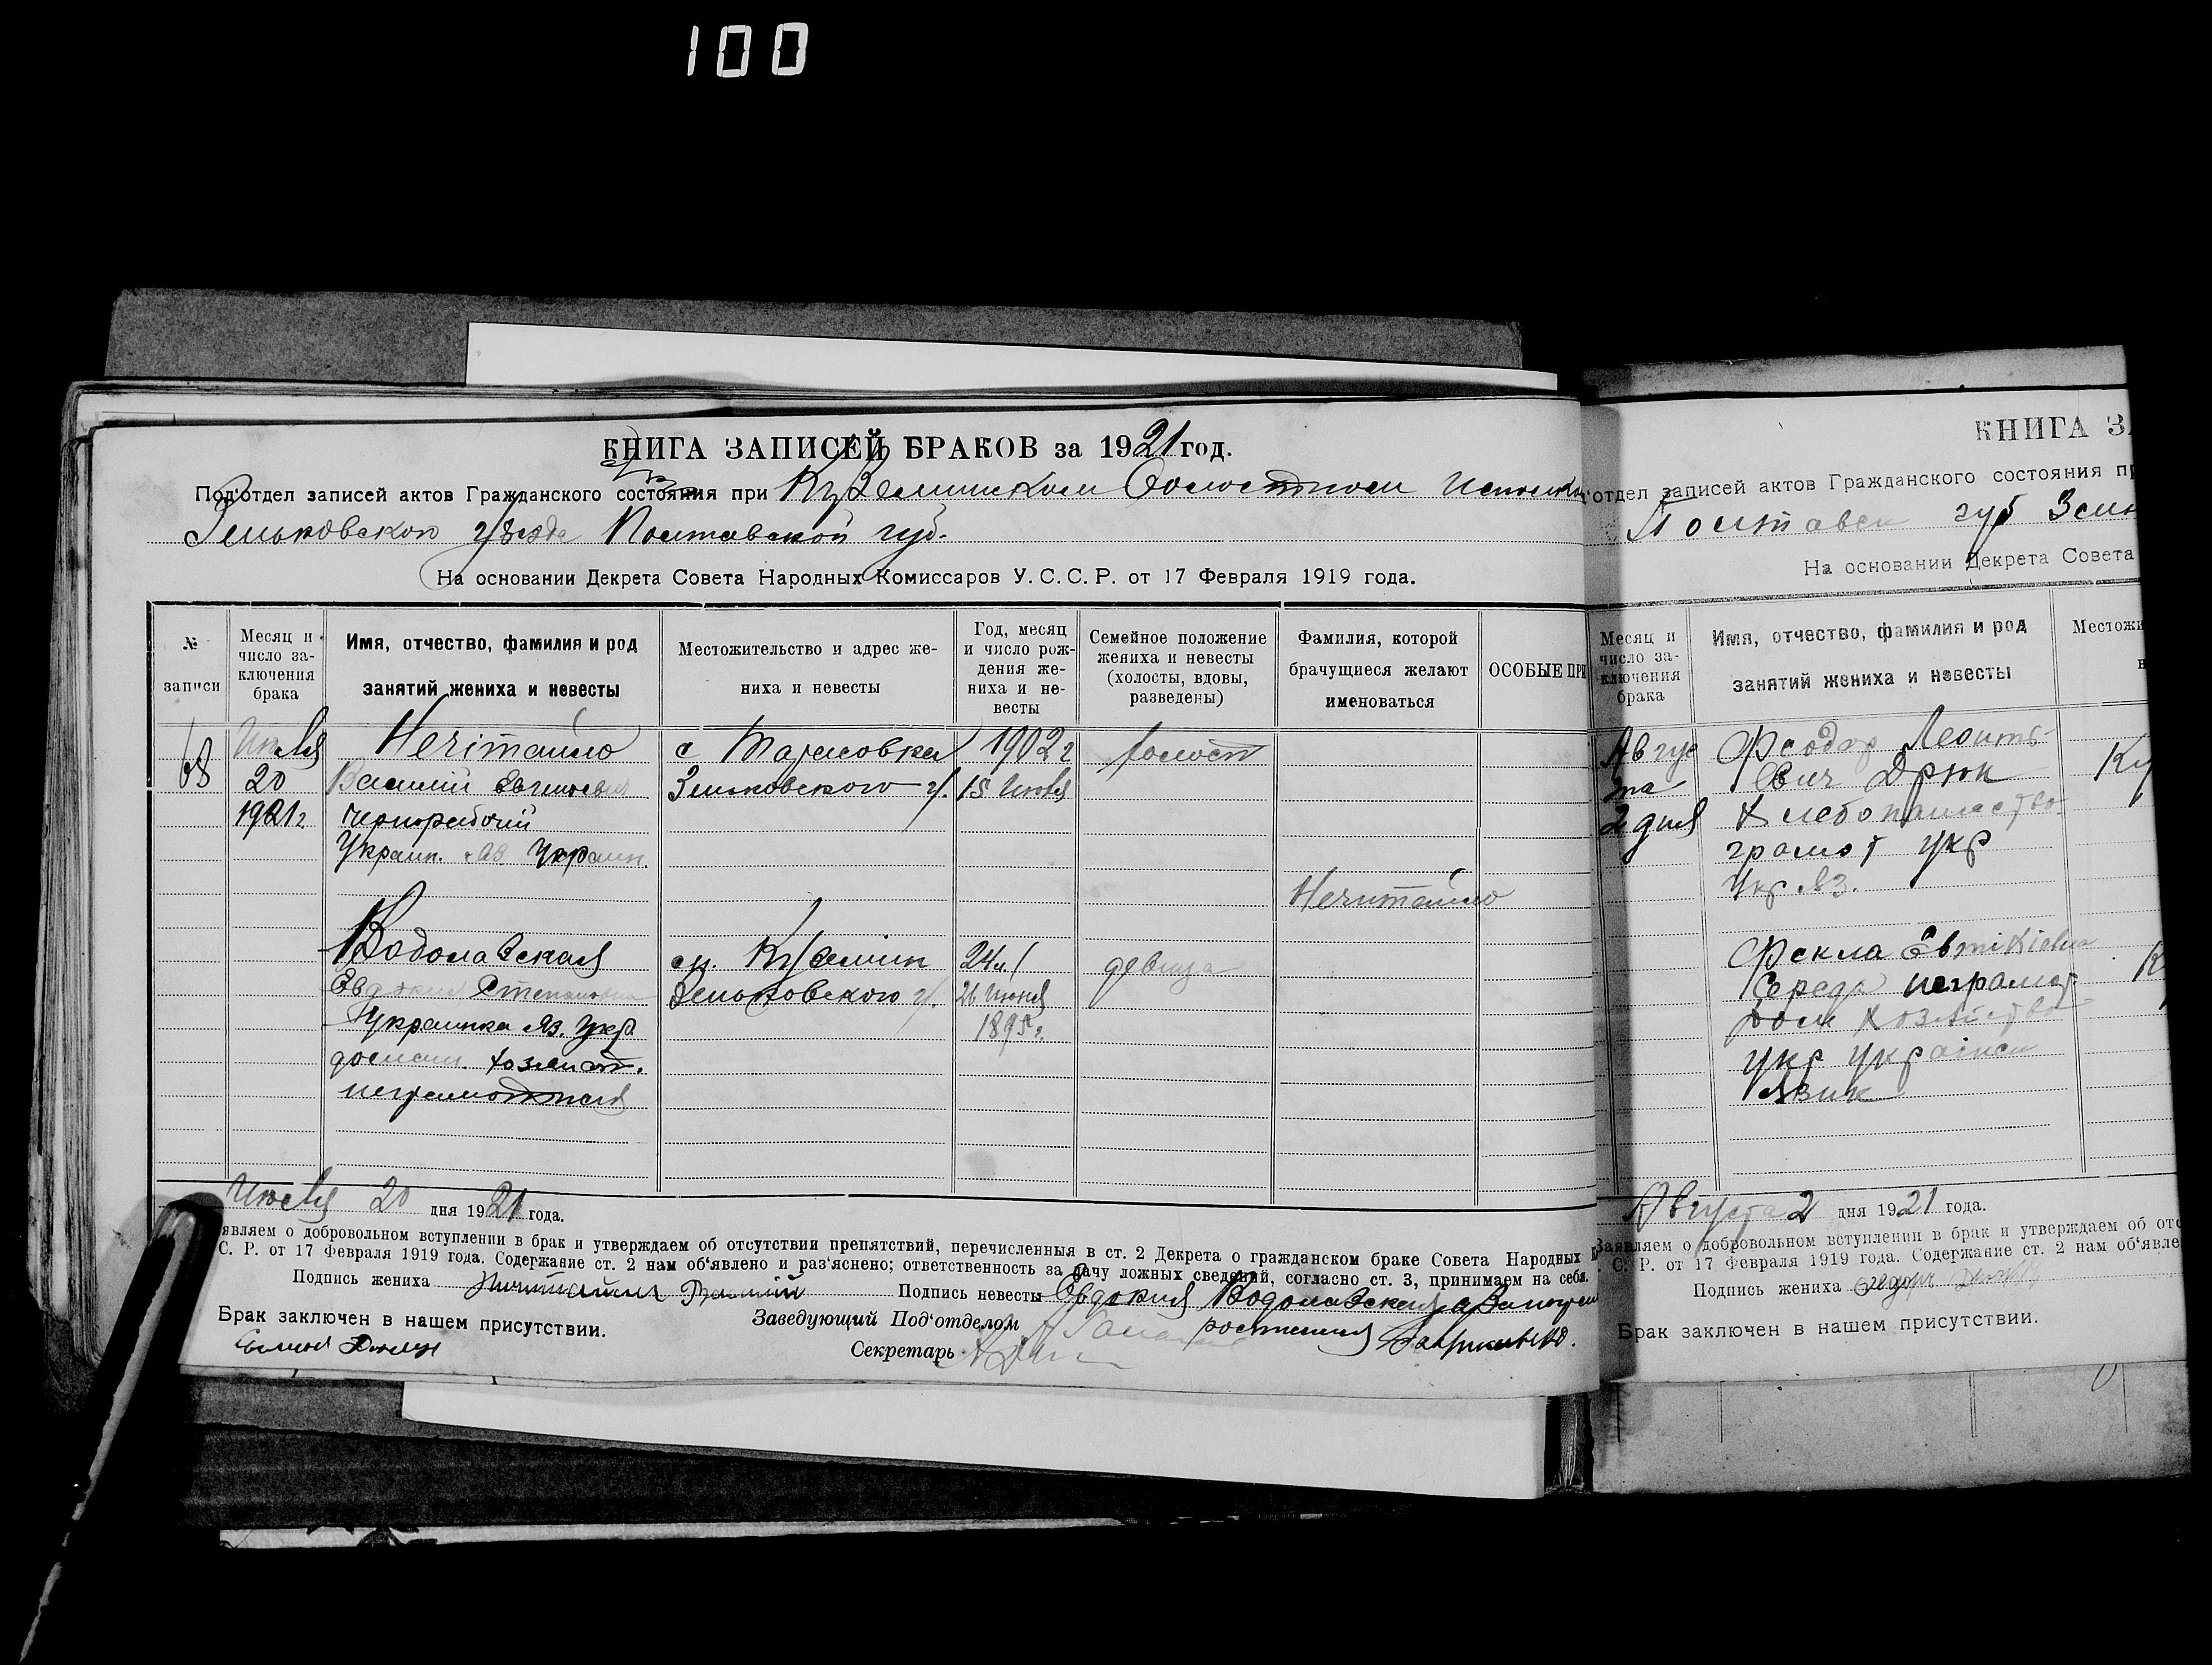 100
КНИГА ЗАПИСЕЙ БРАКОВ за 1921 год.
Под'отдел записей актов Гражданского состояния при Куземинском Волостном
Зеньковскаго уезда Полтавской губ.
На основании Декрета Совета Народных Комиссаров У. С. С. Р. от 17 Февраля 1919 года.
№ записи
Месяц и число заключения брака
Имя, отчество, фамилия и род занятий жениха и невесты
Местожительство и адрес жениха и невесты
Год, месяц и число рождения жениха и невесты
Семейное положение жениха и невесты (холосты, вдовы, разведены)
Фамилия, которой брачущиеся желают именоваться
ОСОБЫЕ ПРИ
68
Июля
20
1921 г
Нечітайло
Василий
чернорабочий
Украин. яз. Украин.
с
Зеньковского у.
1902 г
15 Июля
холост
Нечитайло
Водолазская
Евдокия Степановна
Украинка яз. укр
домаш. хозяйст.
неграмотная
м. Куземин
Зеньковского у.
24 л.
26 Июня
1895 г.
девица
Июля 20 дня 1921 года.
являем о добровольном вступлении в брак и утверждаем об отсутствии препятствий, перечисленныя в ст. 2 Декрета о гражданском браке Совета Народных
С. Р. от 17 Февраля 1919 года. Содержание ст. 2 нам об'явлено и раз'яснено; ответственность за дачу ложных сведений, согласно ст. 3, принимаем на себя.
Подпись жениха
Подпись невесты Евдокия Водолазская
Брак заключен в нашем присутствии.
Заведующий Под'отделом
Секретарь
КНИГА ЗА
отдел записей актов Гражданского состояния пр
Полтавск губ Зень
На основании Декрета Совета
Месяц и число заключения брака
Имя, отчество, фамилия и род занятий жениха и невесты
Местожи
Авгус
та
2 дня
Феодор Леонть-
евич Дрюк
Хлебопашество
грамот укр
Укр яз.
Ку
Фекла Евтіхіевна
Середа неграмот
дом хозяйство
укр українск
язик
К
Августа 2 дня 1921 года.
Заявляем о добровольном вступлении в брак и утверждаем об отс
С. Р. от 17 Февраля 1919 года. Содержание ст. 2 нам об'явле
Подпись жениха
Брак заключен в нашем присутствии.